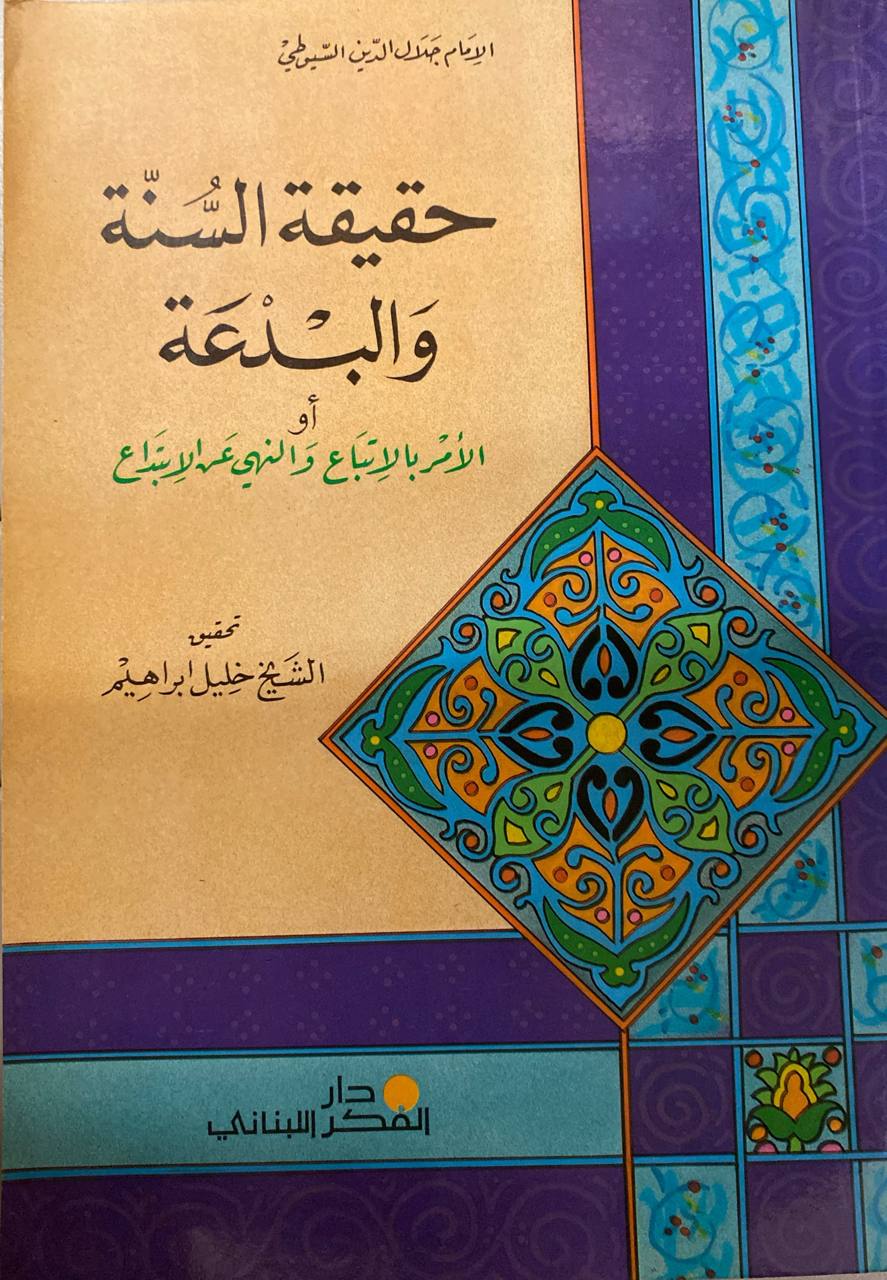 الإمَام جَلَال الدّين السّيوطيْ
حقيقة السُّنّة
وَالبْدْعَة
أو
الأمْر بالإتبَاع وَالنهي عَن الإبتدَاع
تحقيق
الشَيْخ خِليل ابراهِيْم
دار
الفكر اللبناني